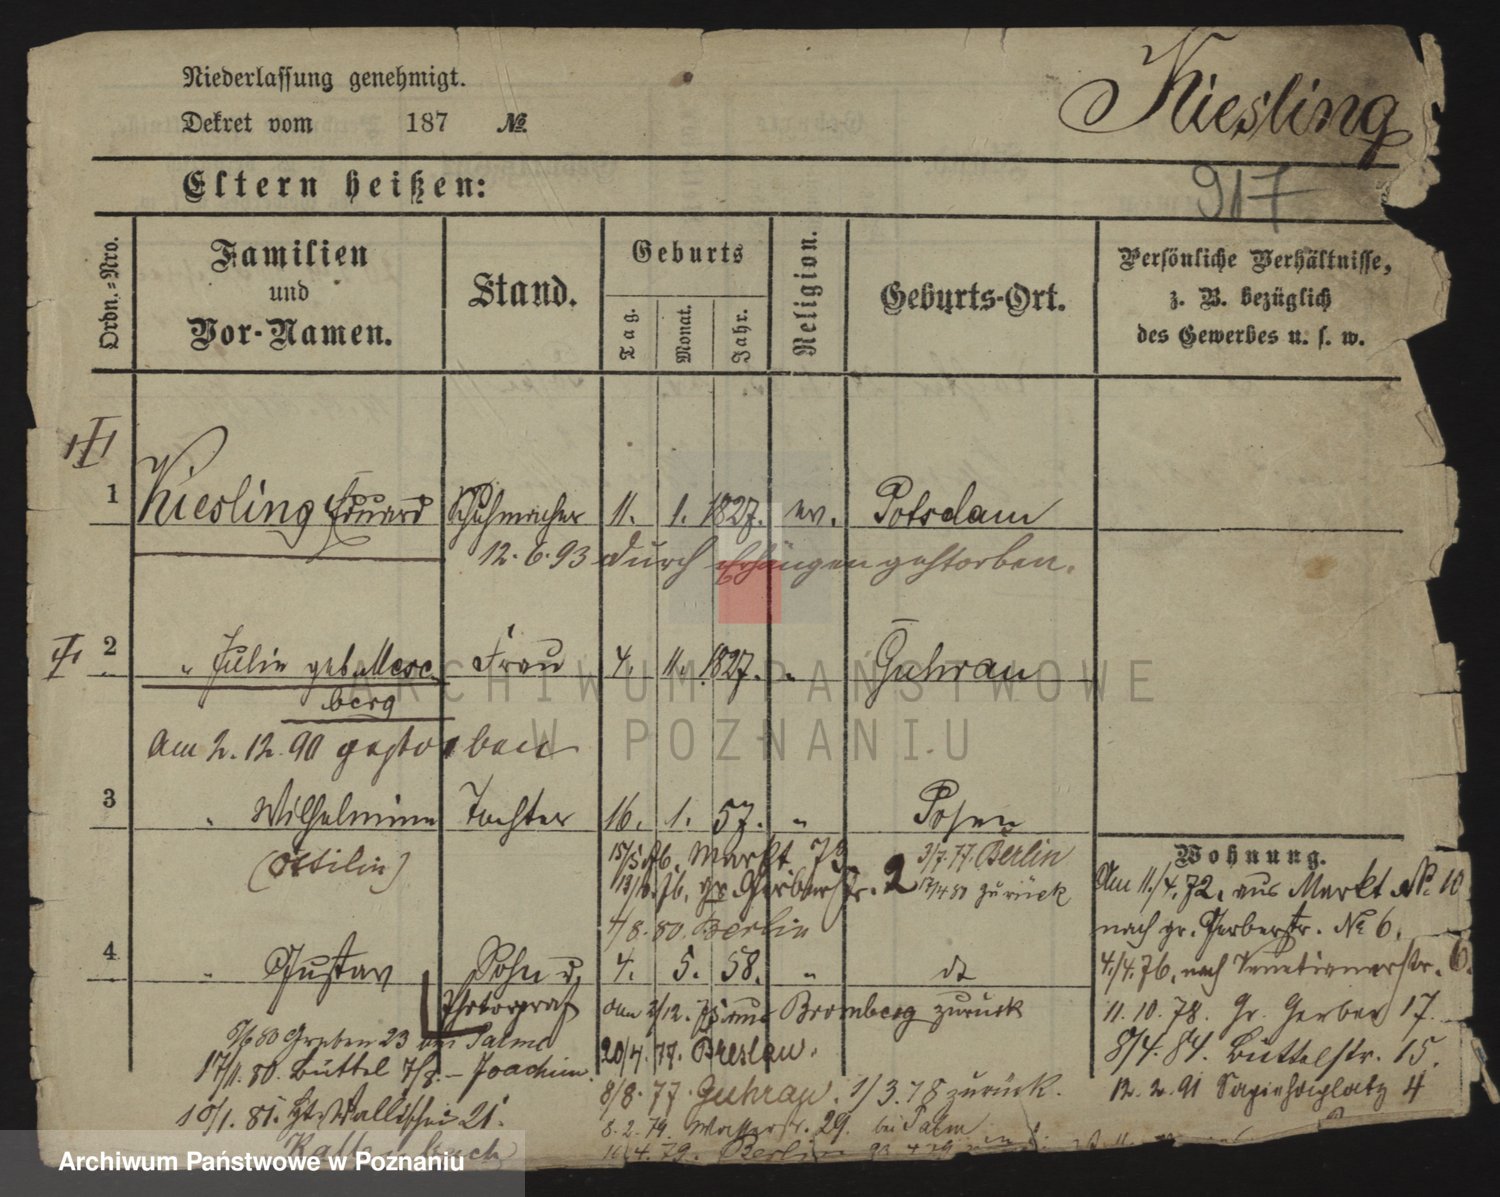 Niederlassung genehmigt.
Dekret vom 187 No.
Kiesling
917
Eltern heißen:
Ordn.-Nro.
Familien und Vor-Namen.
Stand.
Geburts
Tag. Monat. Jahr.
Religion.
Geburts-Ort.
Persönliche Verhältnisse,
z. B. bezüglich
des Gewerbes u. s. w.
1 Kiesling Eduard Schuhmacher 11. 1. 1827. ev. Potsdam
12.6.93 durch Erhängen gestorben.
2 " Julie geb. Merse Frau 4. 11. 1827. " Guhrau
berg
am 2.12.90 gestorben
3 " Wilhelmine Tochter 16. 1. 57. " Posen
(Ottilie)
Markt 73
3/7.77. Berlin
gr. Gerberstr. 2
zurück
4/8.80. Berlin
4 " Gustav Sohn 4. 5. 58. " do
Photograf
am 2/12. 75 aus Bromberg zurück
Graben 23 bei Salme
20/4.77. Breslau.
17/1.80. Büttel 7/8. – Joachim.
8/8.77. Guhrau. 1/3.78 zurück.
10/1.81. Wallischei 21.
8.2.79. Wasserstr. 29. bei Palm
4.79. Berlin
Wohnung.
Am 11./4.72. aus Markt No. 10
nach gr. Gerberstr. No 6.
4./4.76. nach Venetianerstr. 6.
11.10.78. Gr. Gerber 17.
8/4.84. Büttelstr. 15.
12.2.91 Sapiehaplatz 4
ARCHIWUM PAŃSTWOWE
W POZNANIU
Archiwum Państwowe w Poznaniu